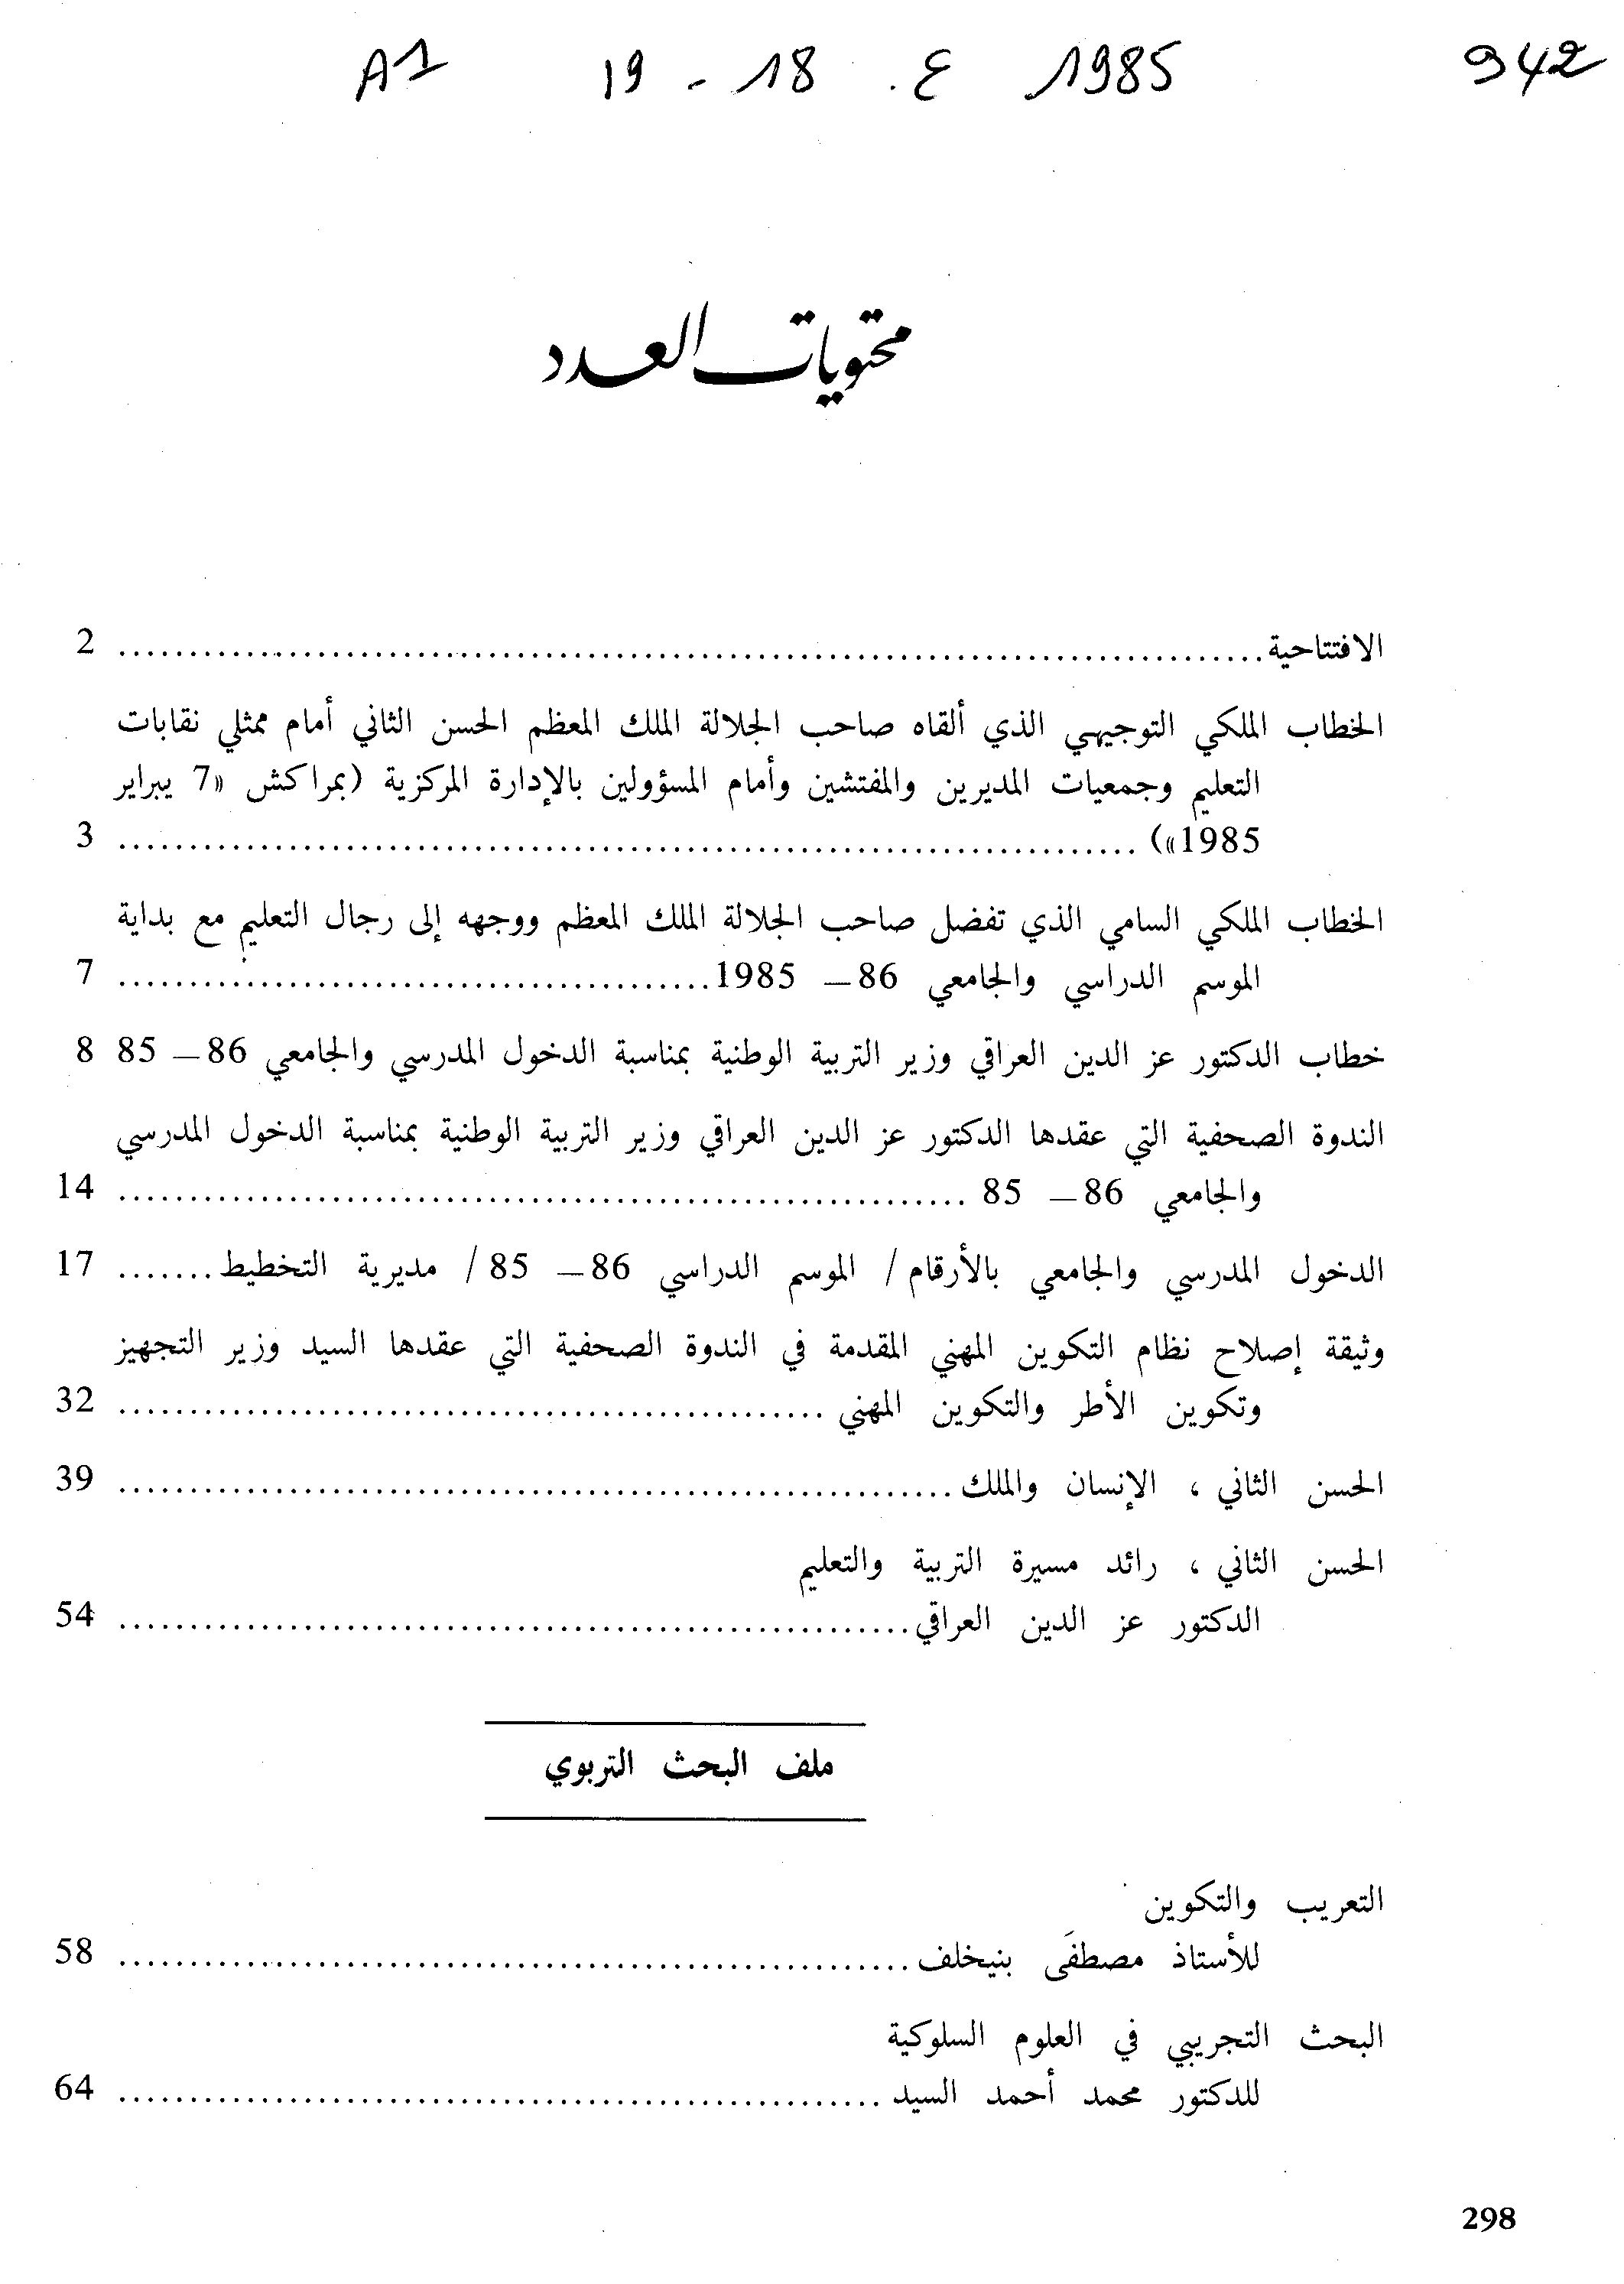 942 1985 ع. 18 - 19 A1
محتويات العدد
الافتتاحية ........................................ 2
الخطاب الملكي التوجيهي الذي ألقاه صاحب الجلالة الملك المعظم الحسن الثاني أمام ممثلي نقابات
التعليم وجمعيات المديرين والمفتشين وأمام المسؤولين بالإدارة المركزية (بمراكش «7 يبراير
1985») ........................................ 3
الخطاب الملكي السامي الذي تفضل صاحب الجلالة الملك المعظم ووجهه إلى رجال التعليم مع بداية
الموسم الدراسي والجامعي 86 — 1985 ........................................ 7
خطاب الدكتور عز الدين العراقي وزير التربية الوطنية بمناسبة الدخول المدرسي والجامعي 86 — 85 8
الندوة الصحفية التي عقدها الدكتور عز الدين العراقي وزير التربية الوطنية بمناسبة الدخول المدرسي
والجامعي 86 — 85 ........................................ 14
الدخول المدرسي والجامعي بالأرقام / الموسم الدراسي 86 — 85 / مديرية التخطيط ........ 17
وثيقة إصلاح نظام التكوين المهني المقدمة في الندوة الصحفية التي عقدها السيد وزير التجهيز
وتكوين الأطر والتكوين المهني ........................................ 32
الحسن الثاني ، الإنسان والملك ........................................ 39
الحسن الثاني ، رائد مسيرة التربية والتعليم
الدكتور عز الدين العراقي ........................................ 54
ملف البحث التربوي
التعريب والتكوين
للأستاذ مصطفَى بنيخلف ........................................ 58
البحث التجريبي في العلوم السلوكية
للدكتور محمد أحمد السيد ........................................ 64
298